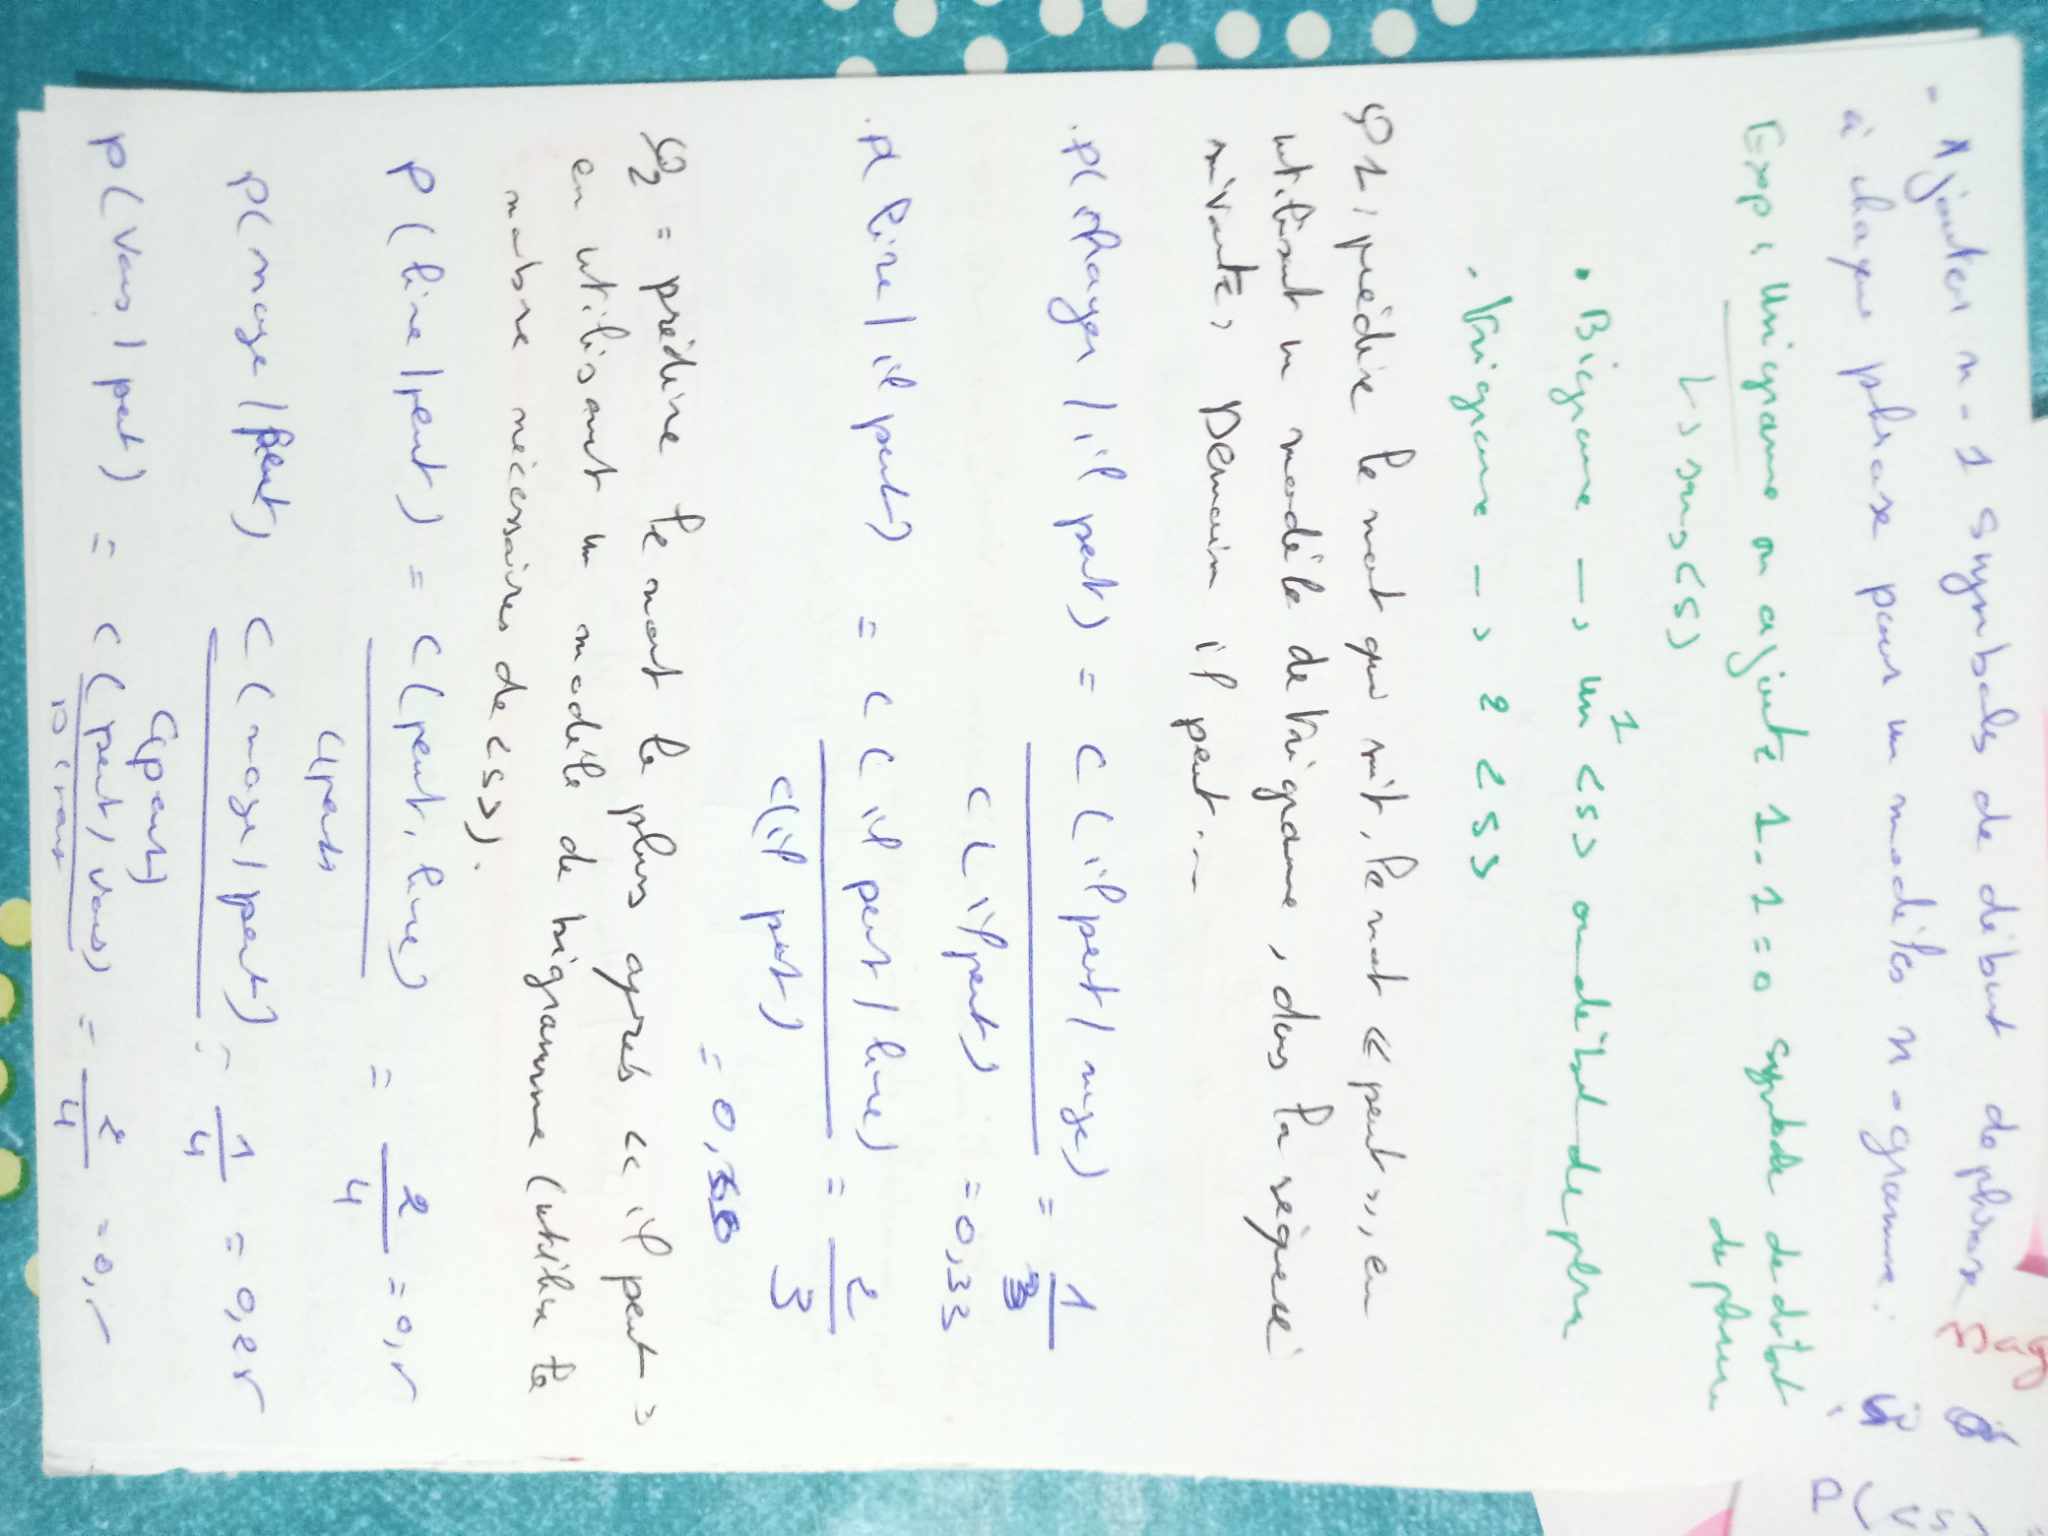 - Ajouter n-1 symbols de début de phrase
à chaque phrase pour un modéles n-gramme.
Exp : Unigramme on ajoute 1-1=0 symbole de debut
de phrase
↳ sans <s>
• Bigrame -> un 1 <s> au début de phra
• trigrame -> 2 <s>
Q1, prédire le mot qui suit, le mot « peut », en
utilisant un modéle de trigrame, dans la séquence
suivante, Demain il peut...
. P( nager / il peut) = C ( il peut / nage) = 1
C ( il peut) = 0,33 3
. P( lire / il peut) = C ( il peut / lire) = 2
C(il peut) 3
= 0,
Q2 = prédire le mot le plus après << il peut >>
en utilisant un modéle de trigramme (utilise le
nombre nécessaires de <s>).
P ( lire / peut ) = C ( peut, lire) = 2 = 0,5
C(peut) 4
P( nage / peut) C ( nage / peut) = 1 = 0,25
C(peut) 4
P( Vous / peut ) = C ( peut, vous) = 2 = 0,5
4
Mag
P(